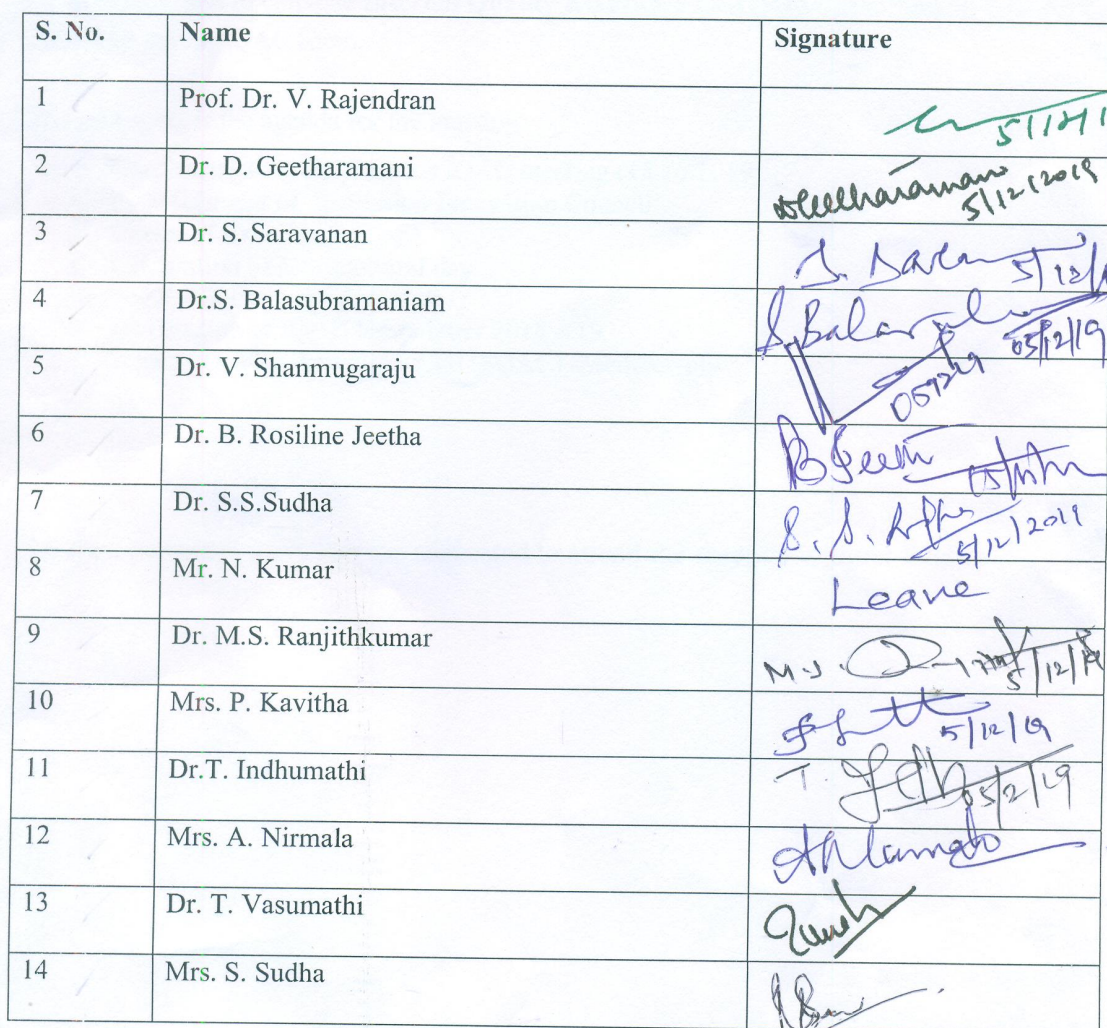 S. No. Name Signature
1 Prof. Dr. V. Rajendran
2 Dr. D. Geetharamani DGeetharamani 5/12/2019
3 Dr. S. Saravanan 5/12/
4 Dr.S. Balasubramaniam 05/12/19
5 Dr. V. Shanmugaraju
6 Dr. B. Rosiline Jeetha
7 Dr. S.S.Sudha 5/12/2019
8 Mr. N. Kumar Leave
9 Dr. M.S. Ranjithkumar 5/12/19
10 Mrs. P. Kavitha 5/12/19
11 Dr.T. Indhumathi
12 Mrs. A. Nirmala
13 Dr. T. Vasumathi
14 Mrs. S. Sudha